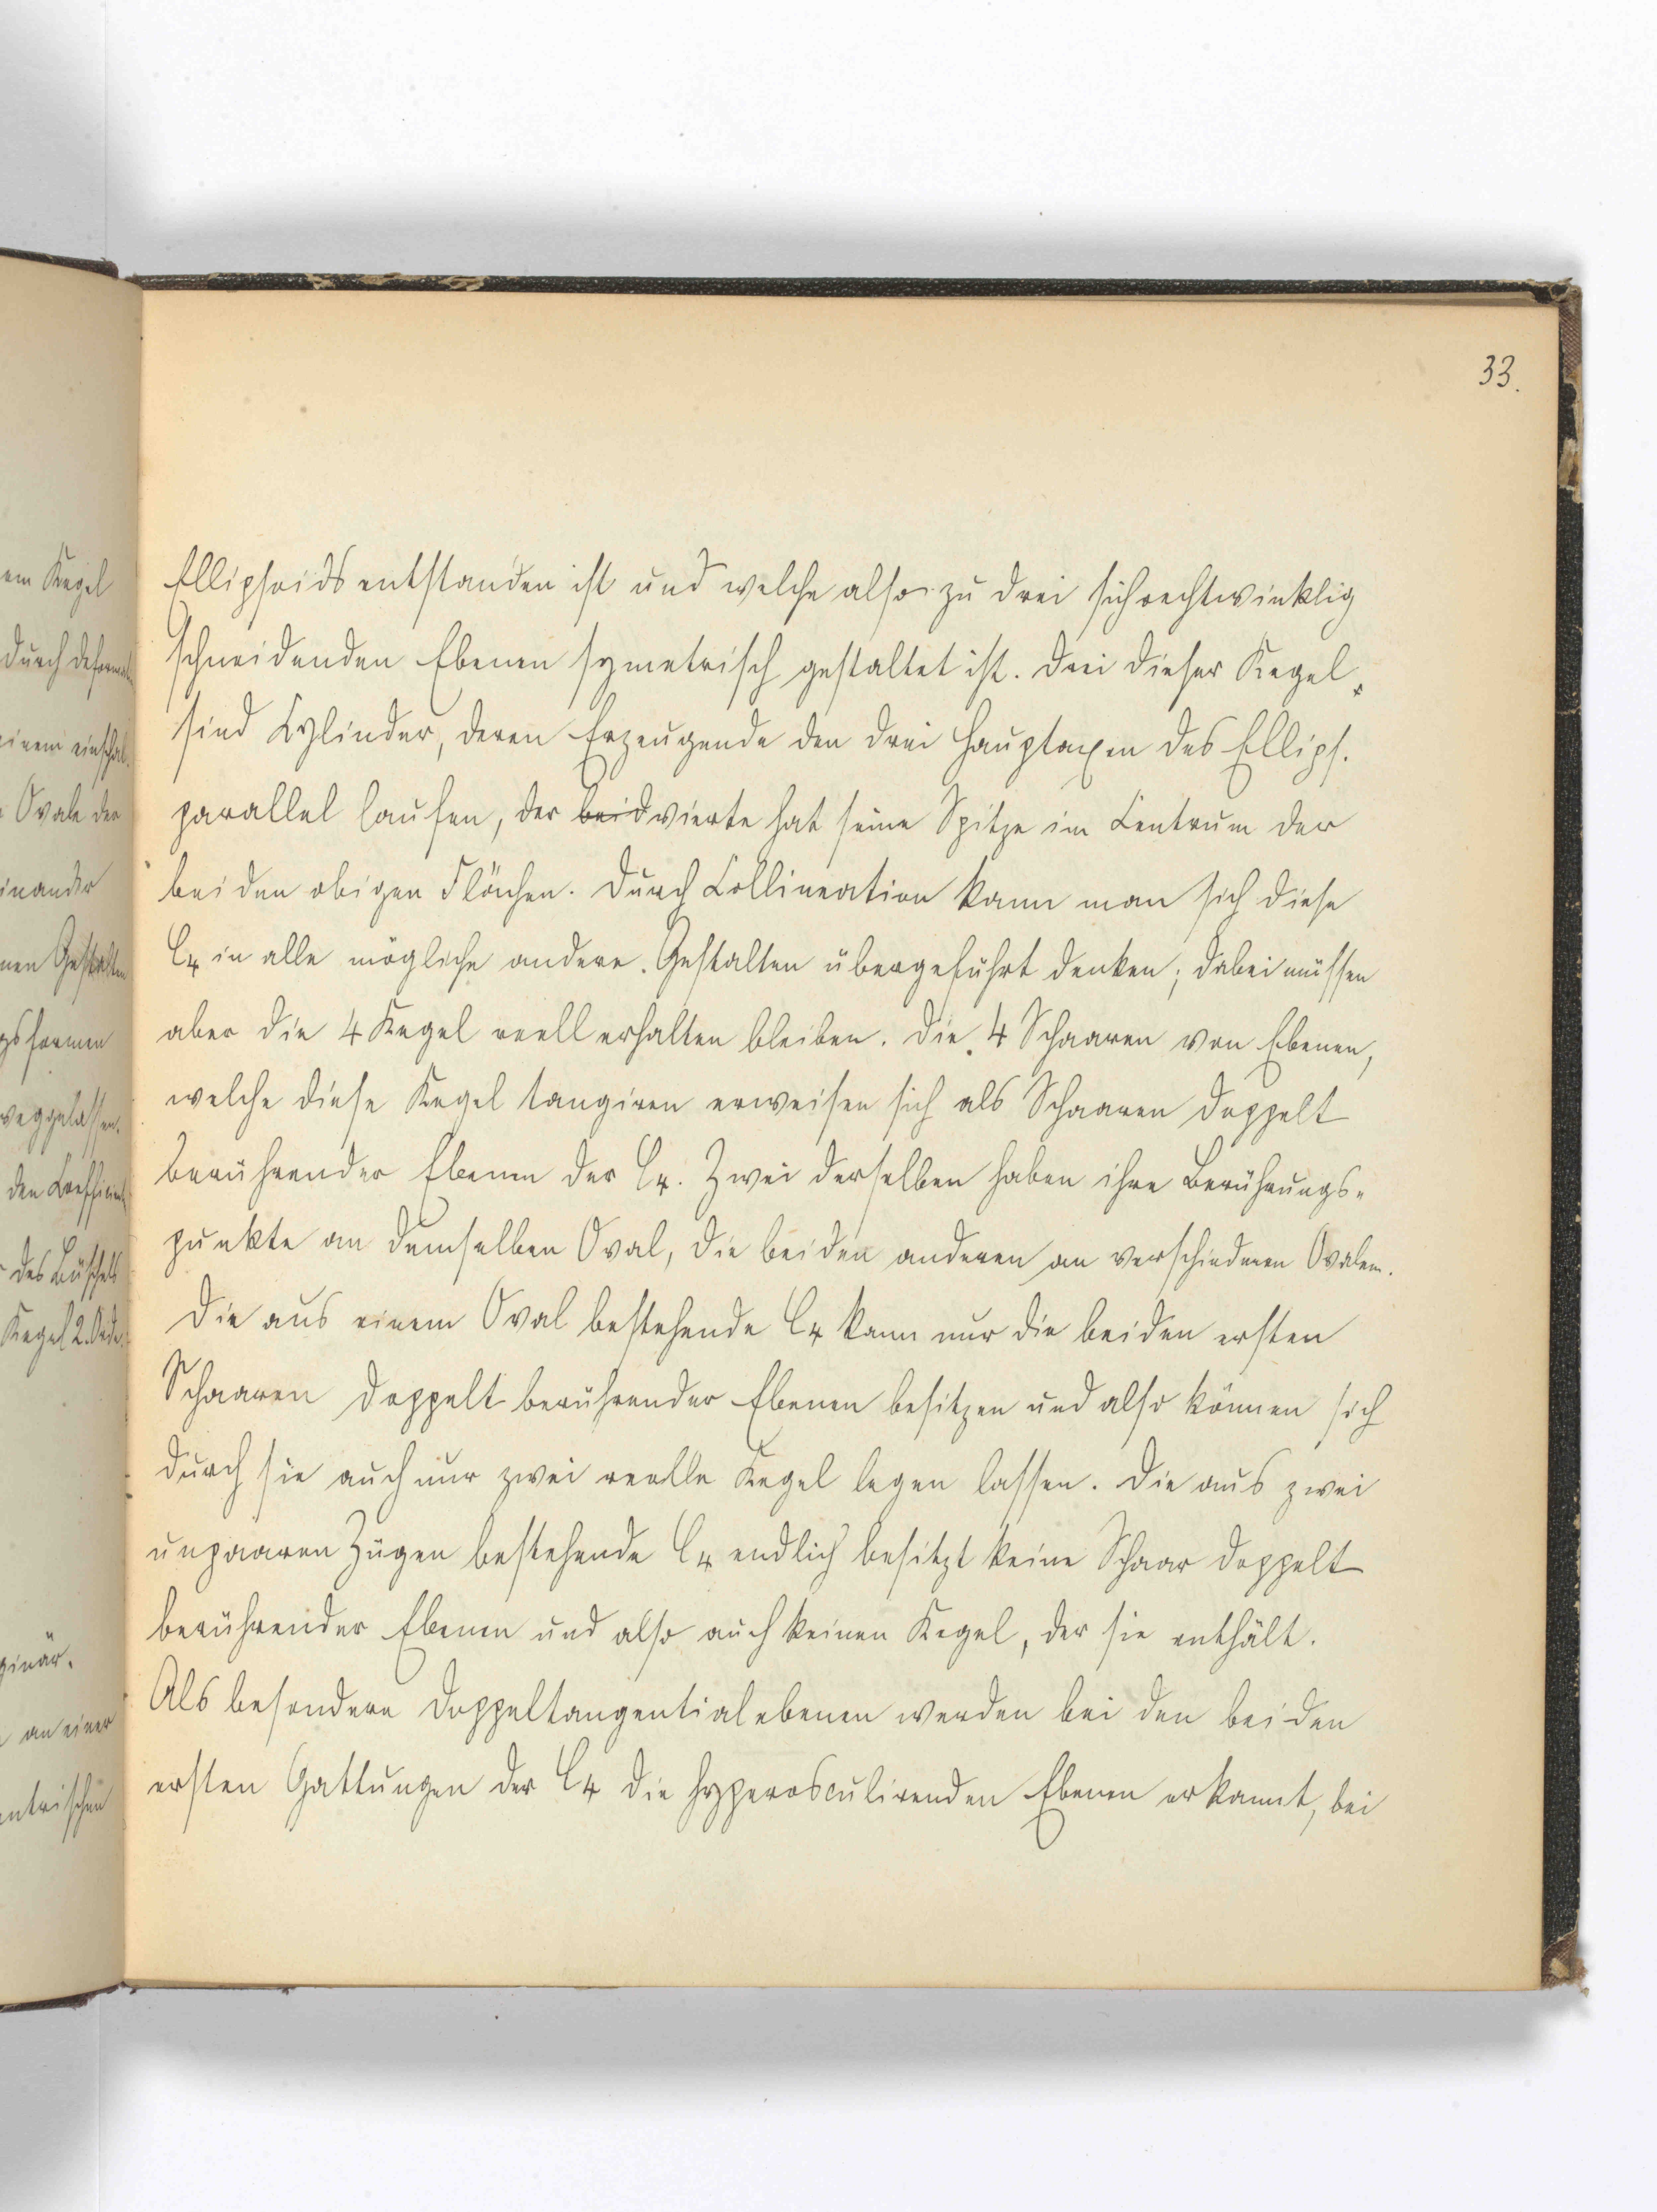 33.
Ellipsoids entstanden ist und welche also zu drei sich rechtwinklig
schneidenden Ebenen symetrisch gestaltet ist. Drei dieser Kegel
sind Cylinder, deren Erzeugende den drei Hauptaxen des Ellips.
parallel laufen, der beid vierte hat seine Spitze im Centrum der
beiden obigen Flächen. Durch Collineation kann man sich diese
C4 in alle mögliche andere Gestalten übergeführt denken; dabei müssen
aber die 4 Kegel reell erhalten bleiben. Die 4 Schaaren von Ebenen,
welche diese Kegel tangiren erweisen sich als Schaaren doppelt
berührender Ebenen der C4. Zwei derselben haben ihre Berührungs-
punkte an demselben Oval, die beiden anderen an verschiedenen Ovalen.
Die aus einem Oval bestehende C4 kann nur die beiden ersten
Schaaren doppelt berührender Ebenen besitzen und also können sich
durch sie auch nur zwei reelle Kegel legen lassen. Die aus zwei
unpaaren Zügen bestehende C4 endlich besitzt keine Schaar doppelt
berührender Ebenen und also auch keinen Kegel, der sie enthält.
Als besondere Doppeltangentialebenen werden bei den beiden
ersten Gattungen der C4 die hyperosculirenden Ebenen erkannt, bei
em Kegel
durch
einem
Ovale der
einander
nen Gestalten
gsformen
weggelassen.
den Coefficient
des Büschels
Kegel 2. Ord
ginär.
an einer
entrischen